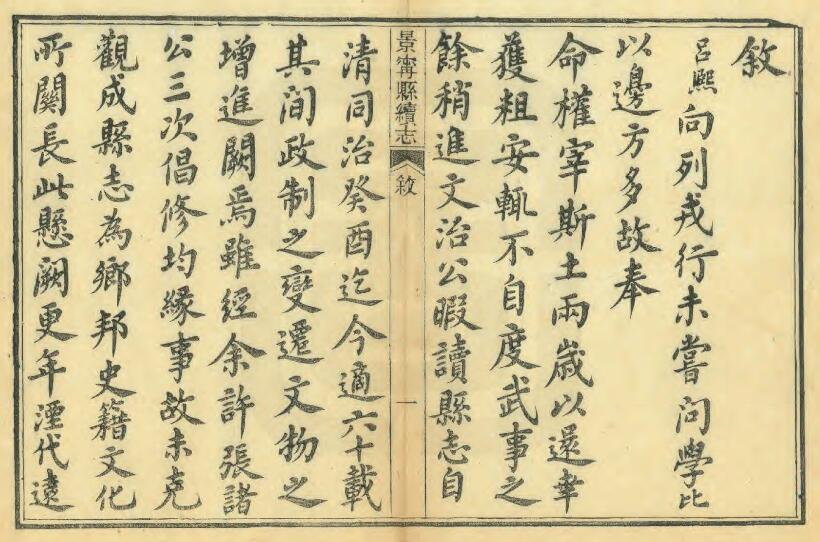 敘
呂熙向列戎行未嘗问學比
以邊方多故奉
命權宰斯土兩歲以還幸
獲粗安輒不自度武事之
餘稍進文治公暇讀縣志自
景寧縣續志 敘 一
清同治癸酉迄今適六十載
其间政制之變遷文物之
增進闕焉雖經余許張諸
公三次倡修均緣事故未克
觀成縣志為鄉邦史籍文化
所關長此懸闕更年湮代遠